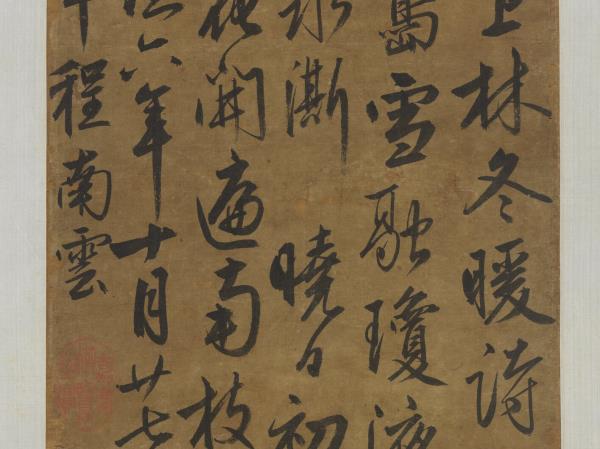 上林冬暖詩
島雪融瓊液
冰澌 曉日初
花開遍南枝
六年十月廿七
程南雲